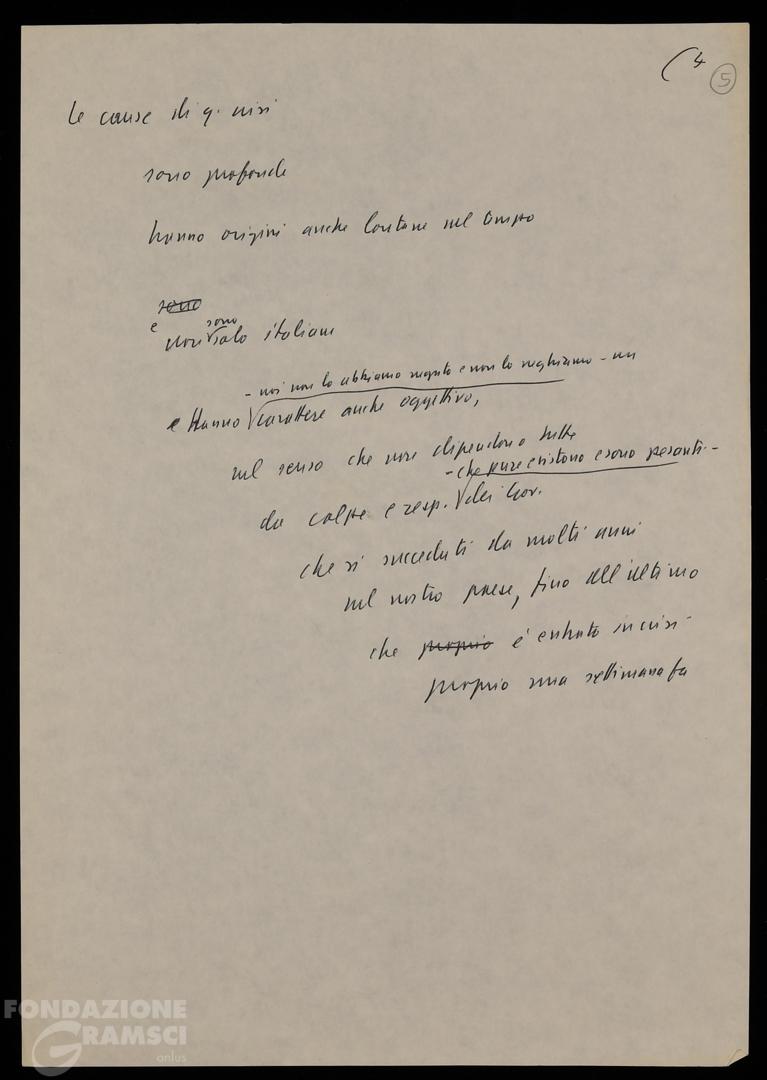 (4
5
le cause di q. crisi
sono profonde
hanno origini anche lontane nel tempo
sono
e non sono solo italiane
- noi non lo abbiamo negato e non lo neghiamo - un
e Hanno carattere anche oggettivo,
nel senso che non dipendono tutte
- che pure esistono e sono pesanti -
da colpe e resp. dei Gov.
che si succeduti da molti anni
nel nostro paese, fino all'ultimo
che proprio è entrato in crisi
proprio una settimana fa
FONDAZIONE
GRAMSCI
onlus